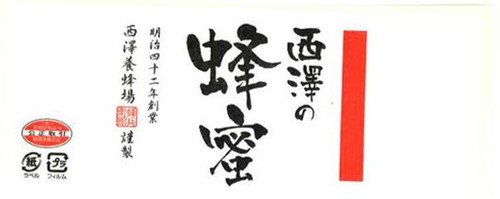 西澤の
蜂蜜
明治四十二年創業
西澤養蜂場 謹製
公正取引
紙
ラベル
プラ
フィルム